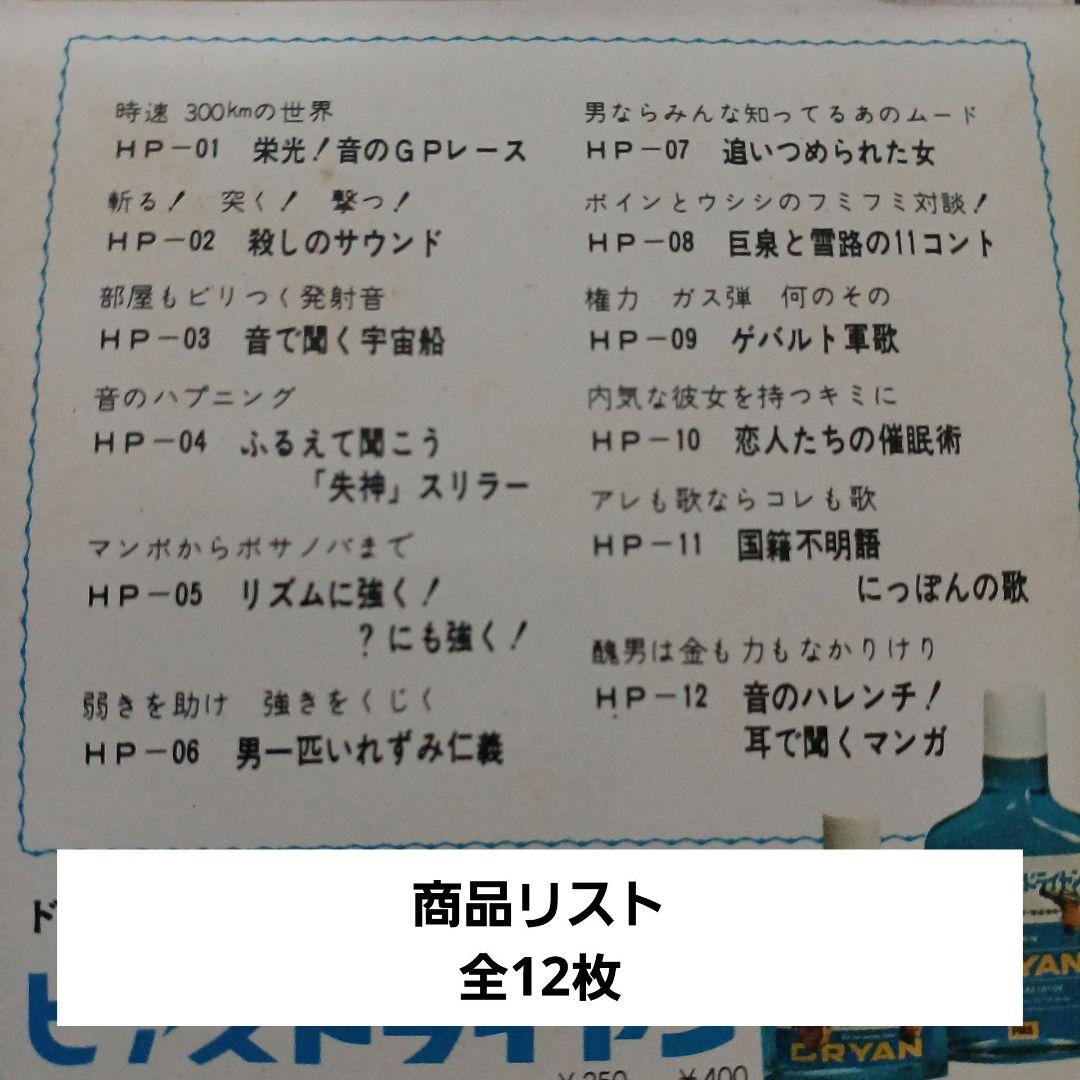 時速 300kmの世界
HP-01 栄光!音のGPレース
斬る! 突く! 撃つ!
HP-02 殺しのサウンド
部屋もビリつく発射音
HP-03 音で聞く宇宙船
音のハプニング
HP-04 ふるえて聞こう
「失神」スリラー
マンボからボサノバまで
HP-05 リズムに強く!
?にも強く!
弱きを助け 強きをくじく
HP-06 男一匹いれずみ仁義
男ならみんな知ってるあのムード
HP-07 追いつめられた女
ボインとウシシのフミフミ対談!
HP-08 巨泉と雪路の11コント
権力 ガス弾 何のその
HP-09 ゲバルト軍歌
内気な彼女を持つキミに
HP-10 恋人たちの催眠術
アレも歌ならコレも歌
HP-11 国籍不明語
にっぽんの歌
醜男は金も力もなかりけり
HP-12 音のハレンチ!
耳で聞くマンガ
商品リスト
全12枚
ピアストライヤン
DRYAN
¥350 ¥400